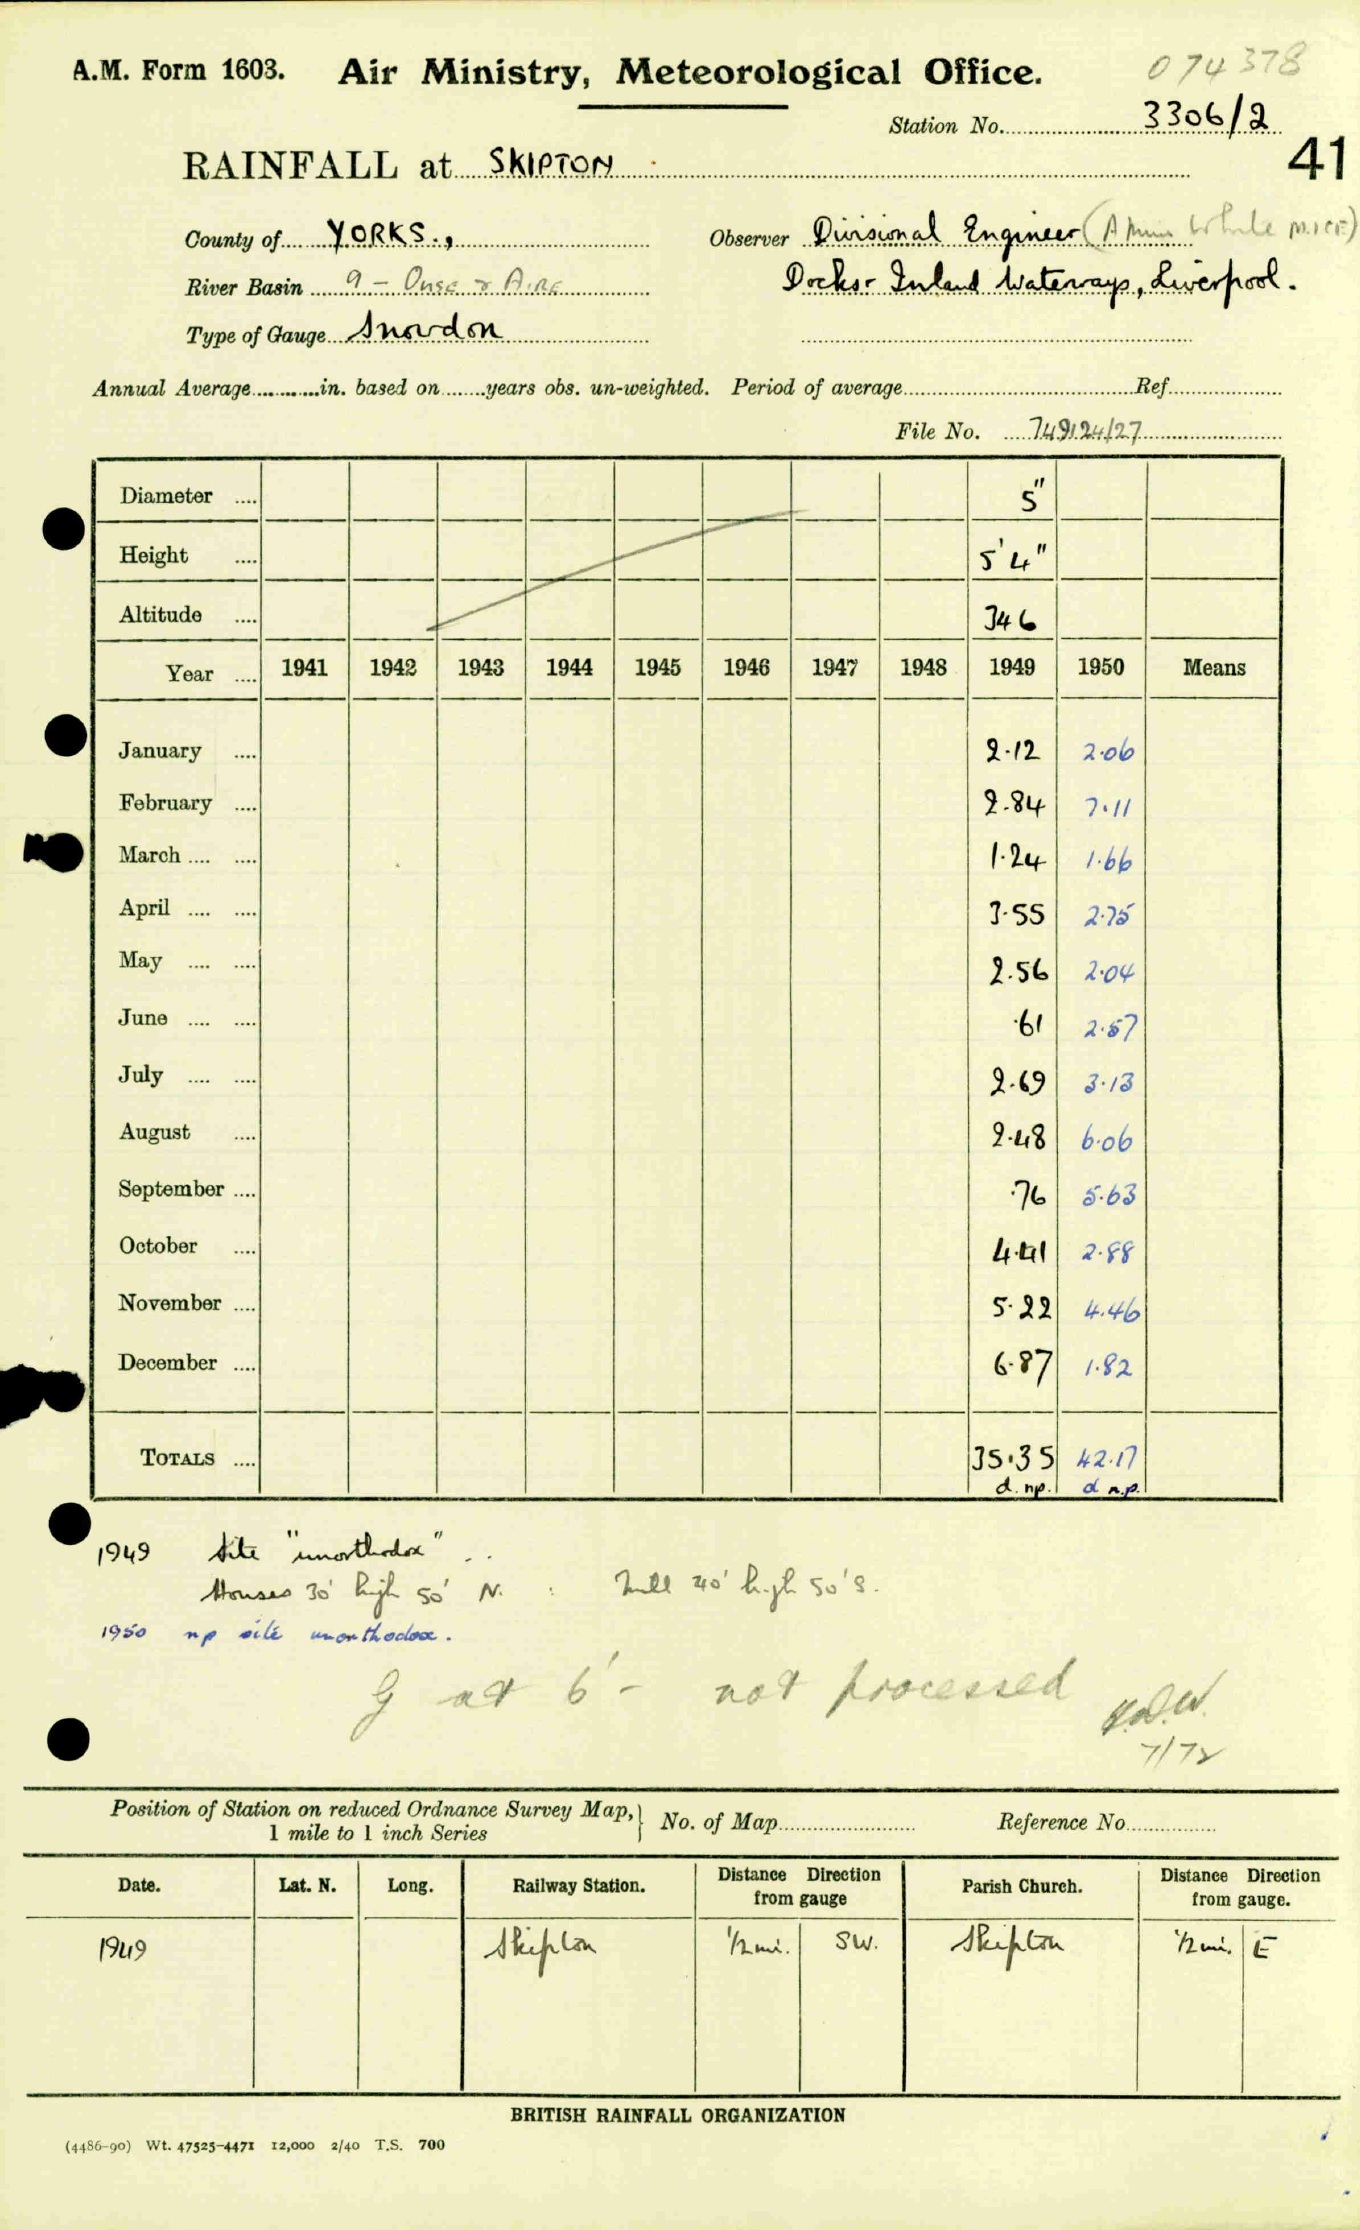 074378
A.M. Form 1603. Air Ministry, Meteorological Office.
Station No. 3306/2
41
RAINFALL at SKIPTON
County of YORKS.,
Observer Divisional Engineer (A White M.I.C.E)
River Basin 9 - Ouse & Aire
Docks & Inland Waterways, Liverpool.
Type of Gauge Snowdon
Annual Average in. based on years obs. un-weighted. Period of average Ref
File No. 749124/27
Diameter 5"
Height 5'4"
Altitude 346
Year 1941 1942 1943 1944 1945 1946 1947 1948 1949 1950 Means
January 2.12 2.06
February 2.84 7.11
March 1.24 1.66
April 3.55 2.75
May 2.56 2.04
June .61 2.57
July 2.69 3.13
August 2.48 6.06
September .76 5.63
October 4.41 2.88
November 5.22 4.46
December 6.87 1.82
TOTALS 35.35 42.17
d. np. d n.p.
1949 Site "unorthodox"
Houses 30' high 50' N. : Mill 40' high 50' S.
1950 np site unorthodox.
G at 6' - not processed
7/72
Position of Station on reduced Ordnance Survey Map, 1 mile to 1 inch Series } No. of Map Reference No.
Date. Lat. N. Long. Railway Station. Distance Direction from gauge Parish Church. Distance Direction from gauge.
1949 Skipton 1/2 mi. SW. Skipton 1/2 mi. E
BRITISH RAINFALL ORGANIZATION
(4486-90) Wt. 47525-4471 12,000 2/40 T.S. 700